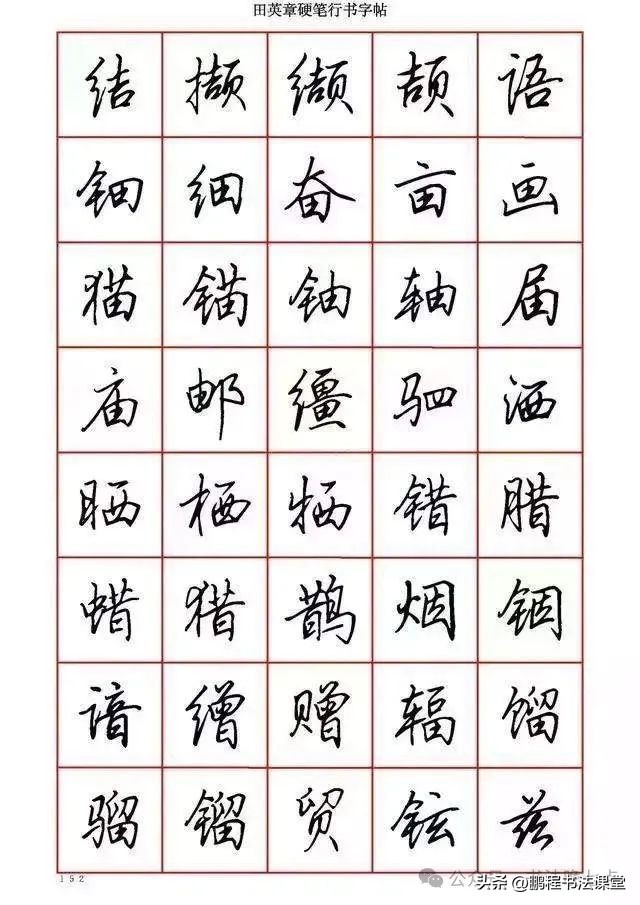 田英章硬笔行书字帖
结撷缬颉语
钿细奋亩画
猫锚铀轴届
庙邮缰驷洒
晒栖牺错腊
蜡猎鹊烟锢
谙缯赠辐馏
骝镏贸铉兹
152
公众号
头条@鹏程书法课堂